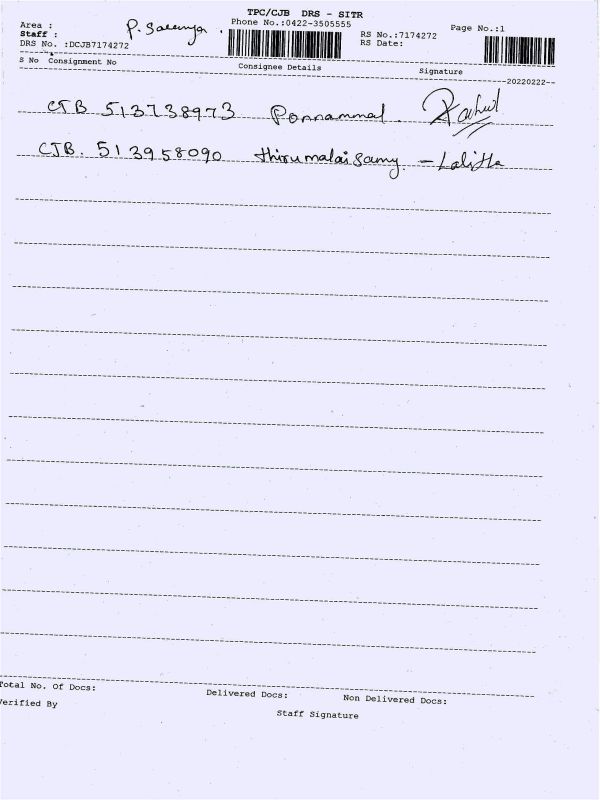 TPC/CJB DRS - SITR
Area :
Phone No.:0422-3505555
Page No.:1
Staff : P.
RS No.:7174272
DRS No. :DCJB7174272
RS Date:
S No Consignment No Consignee Details Signature
20220222
CJB 513738973 Ponnammal. Rahul
CJB. 513958090 thirumalaisamy - Lalitha
Total No. Of Docs: Delivered Docs: Non Delivered Docs:
Verified By
Staff Signature